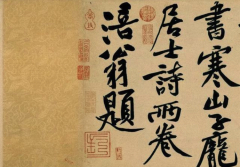 書寒山子龐
居士詩兩卷
涪翁題